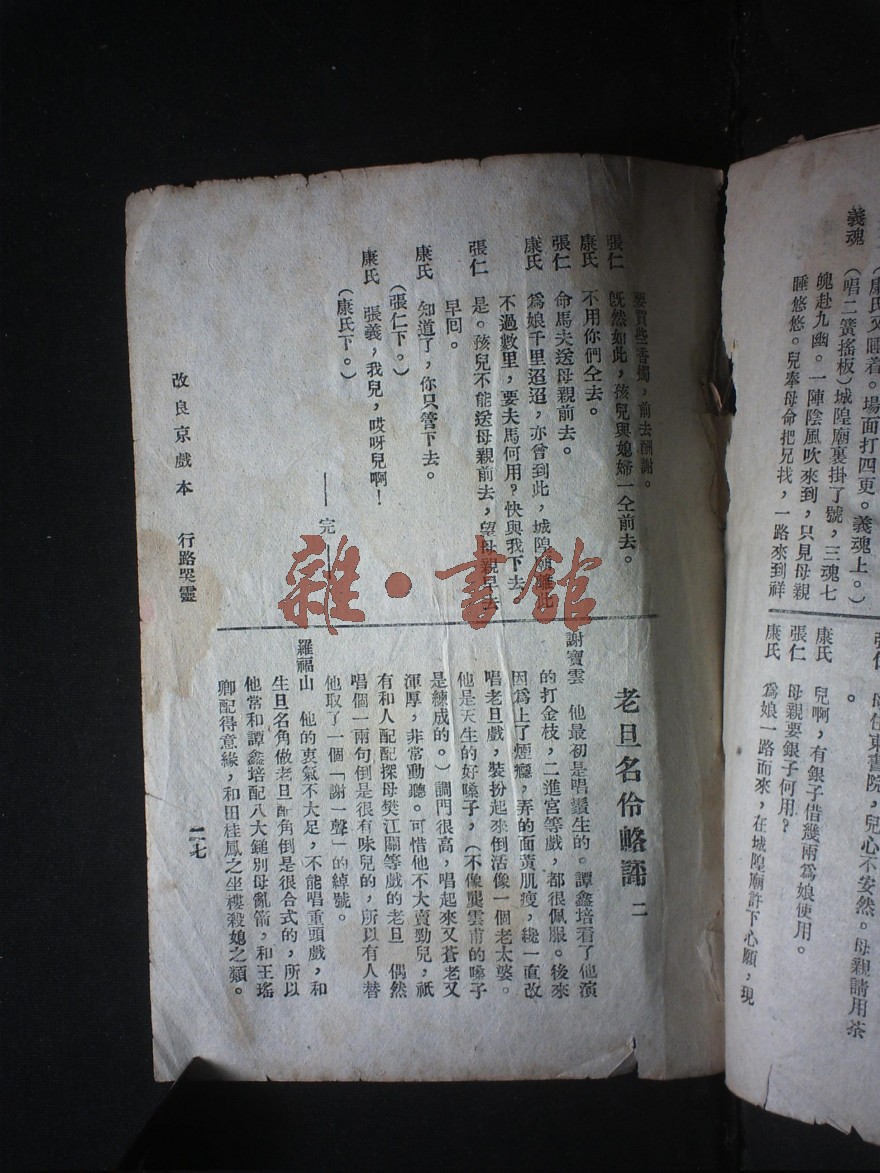 義魂
（唱二簧搖板）城隍廟裏掛了號，三魂七
魄赴九幽。一陣陰風吹來到，只見母親
睡悠悠。兒奉母命把兄找，一路來到祥
母住東書院，兒心不安然。母親請用茶
。
康氏　兒啊，有銀子借幾兩爲娘使用。
張仁　母親要銀子何用？
康氏　爲娘一路而來，在城隍廟許下心願，現
要買些香燭，前去酬謝。
張仁　旣然如此，孩兒與媳婦一仝前去。
康氏　不用你們仝去。
張仁　命馬夫送母親前去。
康氏　爲娘千里迢迢，亦曾到此，城隍廟離此
不過數里，要夫馬何用？快與我下去
張仁　是。孩兒不能送母親前去，望母親早去
早回。
康氏　知道了，你只管下去。
（張仁下。）
康氏　張義，我兒，哎呀兒啊！
（康氏下。）
——完——
老旦名伶略評　二
謝寶雲　他最初是唱鬚生的。譚鑫培看了他演
的打金枝，二進宮等戲，都很佩服。後來
因爲上了煙癮，弄的面黃肌瘦，纔一直改
唱老旦戲，裝扮起來倒活像一個老太婆。
他是天生的好嗓子，（不像龔雲甫的嗓子
是練成的。）調門很高，唱起來又蒼老又
渾厚，非常動聽。可惜他不大賣勁兒，祇
有和人配配探母樊江關等戲的老旦　偶然
唱個一兩句倒是很有味兒的，所以有人替
他取了一個「謝一聲」的綽號。
羅福山　他的衷氣不大足，不能唱重頭戲，和
生旦名角做老旦配角倒是很合式的，所以
他常和譚鑫培配八大鎚別母亂箭，和王瑤
卿配得意緣，和田桂鳳之坐樓殺媳之類。
改良京戲本　行路哭靈
二七
雜·書館